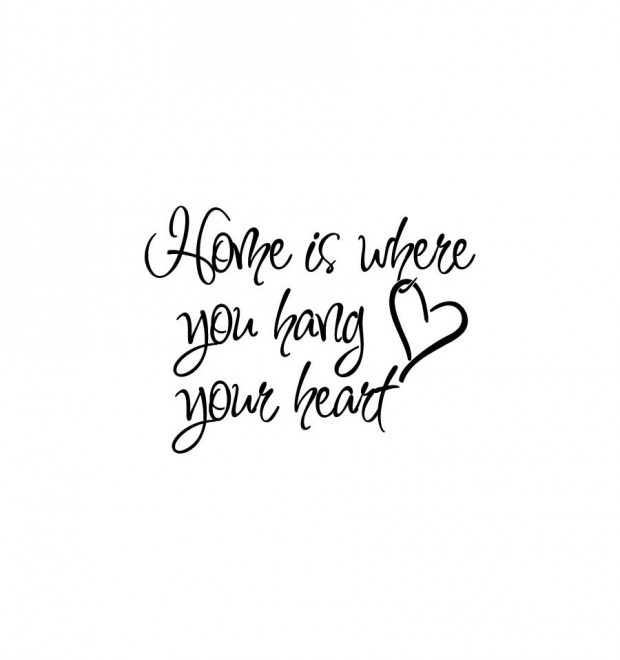 Home is where
you hang
your heart